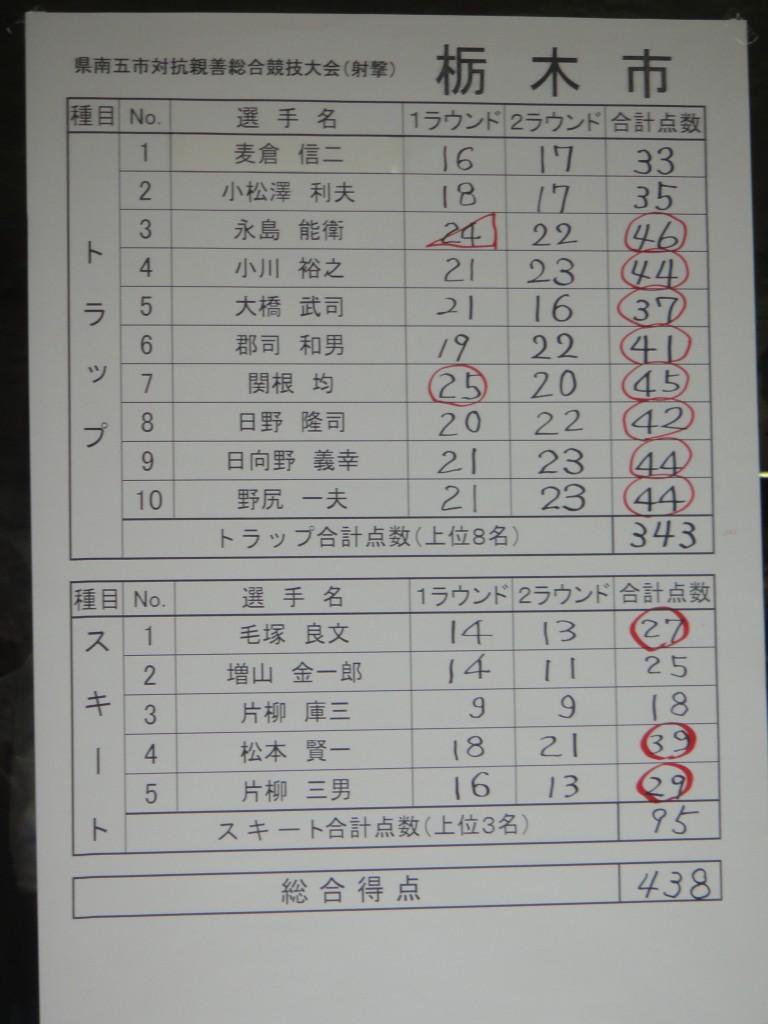 県南五市対抗親善総合競技大会(射撃) 栃木市
種目 No. 選手名 1ラウンド 2ラウンド 合計点数
トラップ
1 麦倉 信二 16 17 33
2 小松澤 利夫 18 17 35
3 永島 能衛 24 22 46
4 小川 裕之 21 23 44
5 大橋 武司 21 16 37
6 郡司 和男 19 22 41
7 関根 均 25 20 45
8 日野 隆司 20 22 42
9 日向野 義幸 21 23 44
10 野尻 一夫 21 23 44
トラップ合計点数(上位8名) 343
種目 No. 選手名 1ラウンド 2ラウンド 合計点数
スキート
1 毛塚 良文 14 13 27
2 増山 金一郎 14 11 25
3 片柳 庫三 9 9 18
4 松本 賢一 18 21 39
5 片柳 三男 16 13 29
スキート合計点数(上位3名) 95
総合得点 438